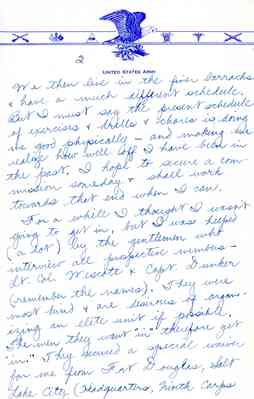 UNITED STATES ARMY
2
We then live in the finer barracks
& have a much different schedule.
But I must say the present schedule
of exercises & drills & chores is doing
me good physically – and making me
realize how well off I have been in
the past. I hope to secure a com-
mission someday & shall work
towards that end when I can.
For a while I thought I wasn't
going to get in, but I was helped
(a lot) by the gentlemen who
interview all prospective members –
Lt. Col. & Capt.
(remember the names). They were
most kind & are desirous of organ-
izing an elite unit if possible.
The men they want "in" therefore get
"in". They secured a special waiver
for me from Fort Douglas, Salt
Lake City (Headquarters, Ninth Corps